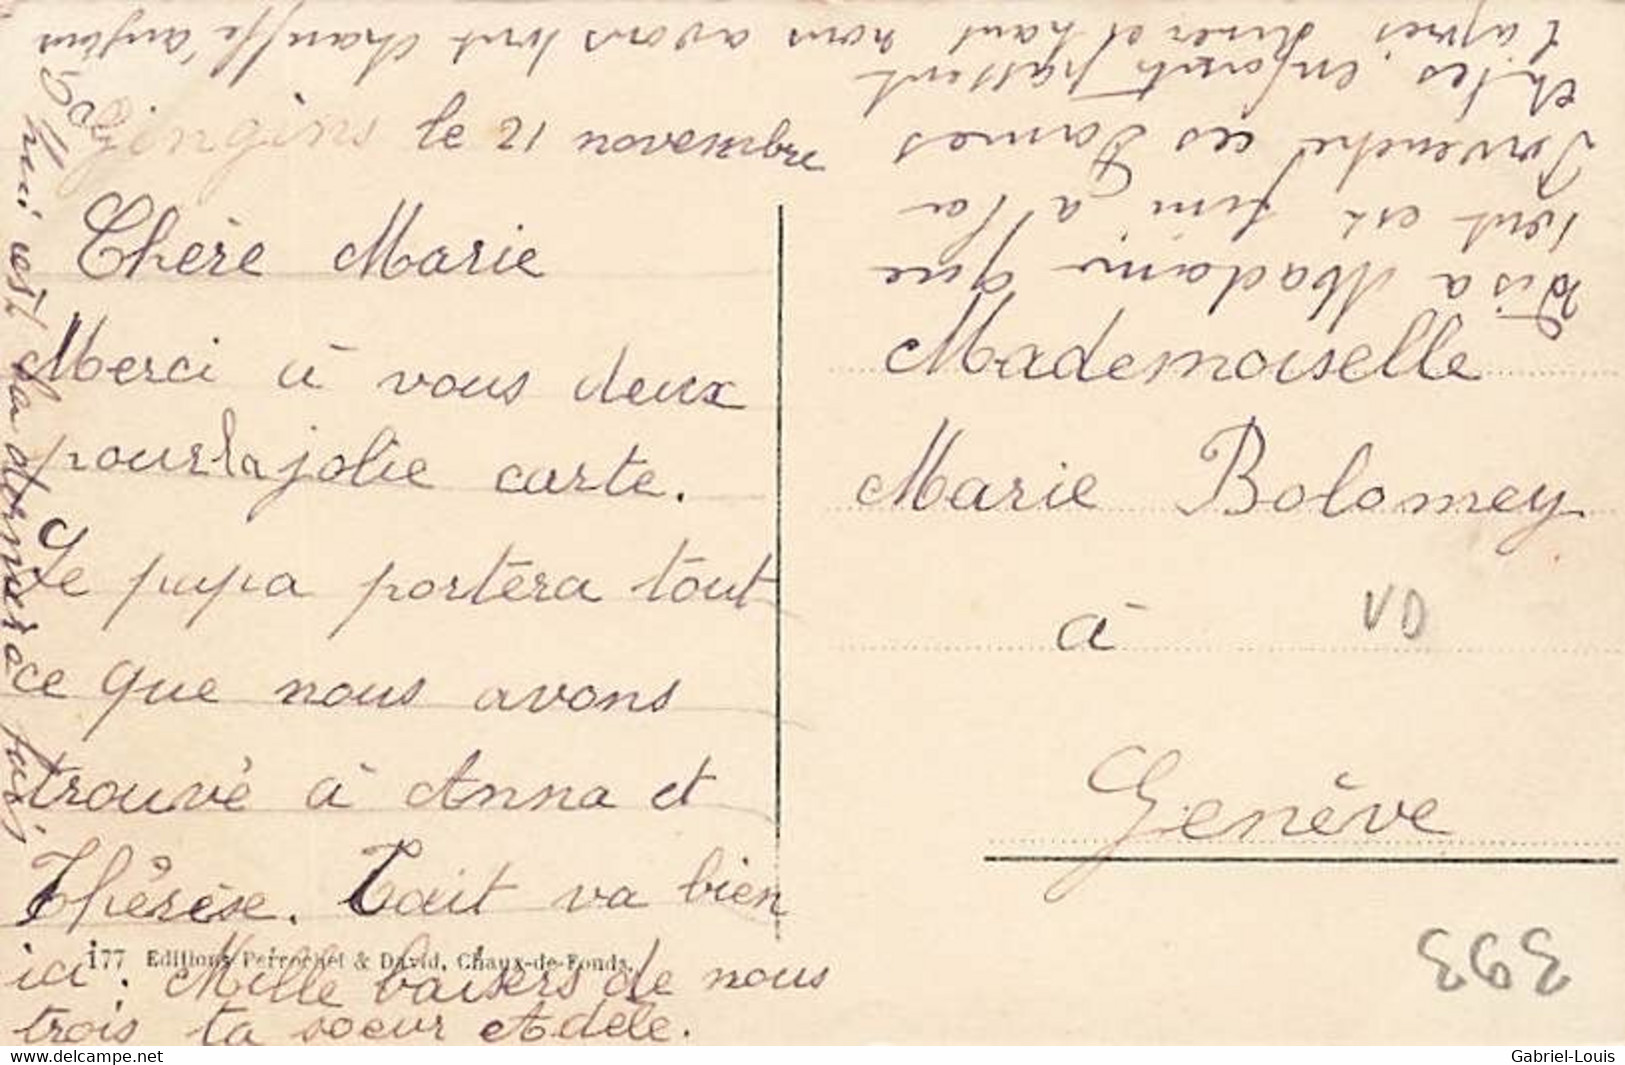 Gingins le 21 novembre
Chère Marie
Merci à vous deux
pour la jolie carte.
Le papa portera tout
ce que nous avons
trouvé à Anna et
Thérèse. Tait va bien
ici. Mille baisers de nous
trois ta soeur Adèle.
177 Editions Perrochet & David, Chaux-de-Fonds.
Dis à Madame que
tout est fini à la
Torvenche ces dames
et les enfants passent
l'après diner et haut nous avons tout chauffé
Mademoiselle
Marie Bolomey
à
Genève
VD
393
delcampe.net
Gabriel-Louis